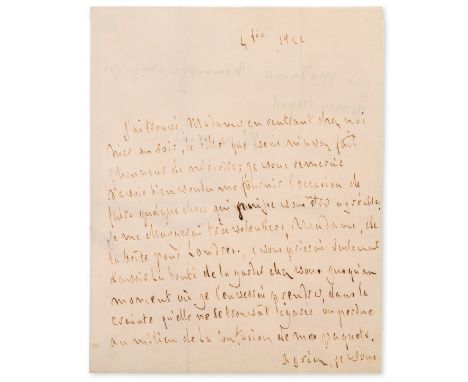 4 fév 1842
J'ai trouvé, Madame, en rentrant chez moi
hier au soir, le billet que vous m'avez fait
l'honneur de m'écrire; je vous remercie
d'avoir bien voulu me fournir l'occasion de
faire quelque chose qui puisse vous être agréable.
je me chargerai très volontiers, Madame, de
la boîte pour Londres, je vous prierai seulement
d'avoir la bonté de la garder chez vous jusqu'au
moment où je l'enverrai prendre, dans la
crainte qu'elle ne se trouvât égarée ou perdue
au milieu de la confusion de mes paquets.
agréez, je vous